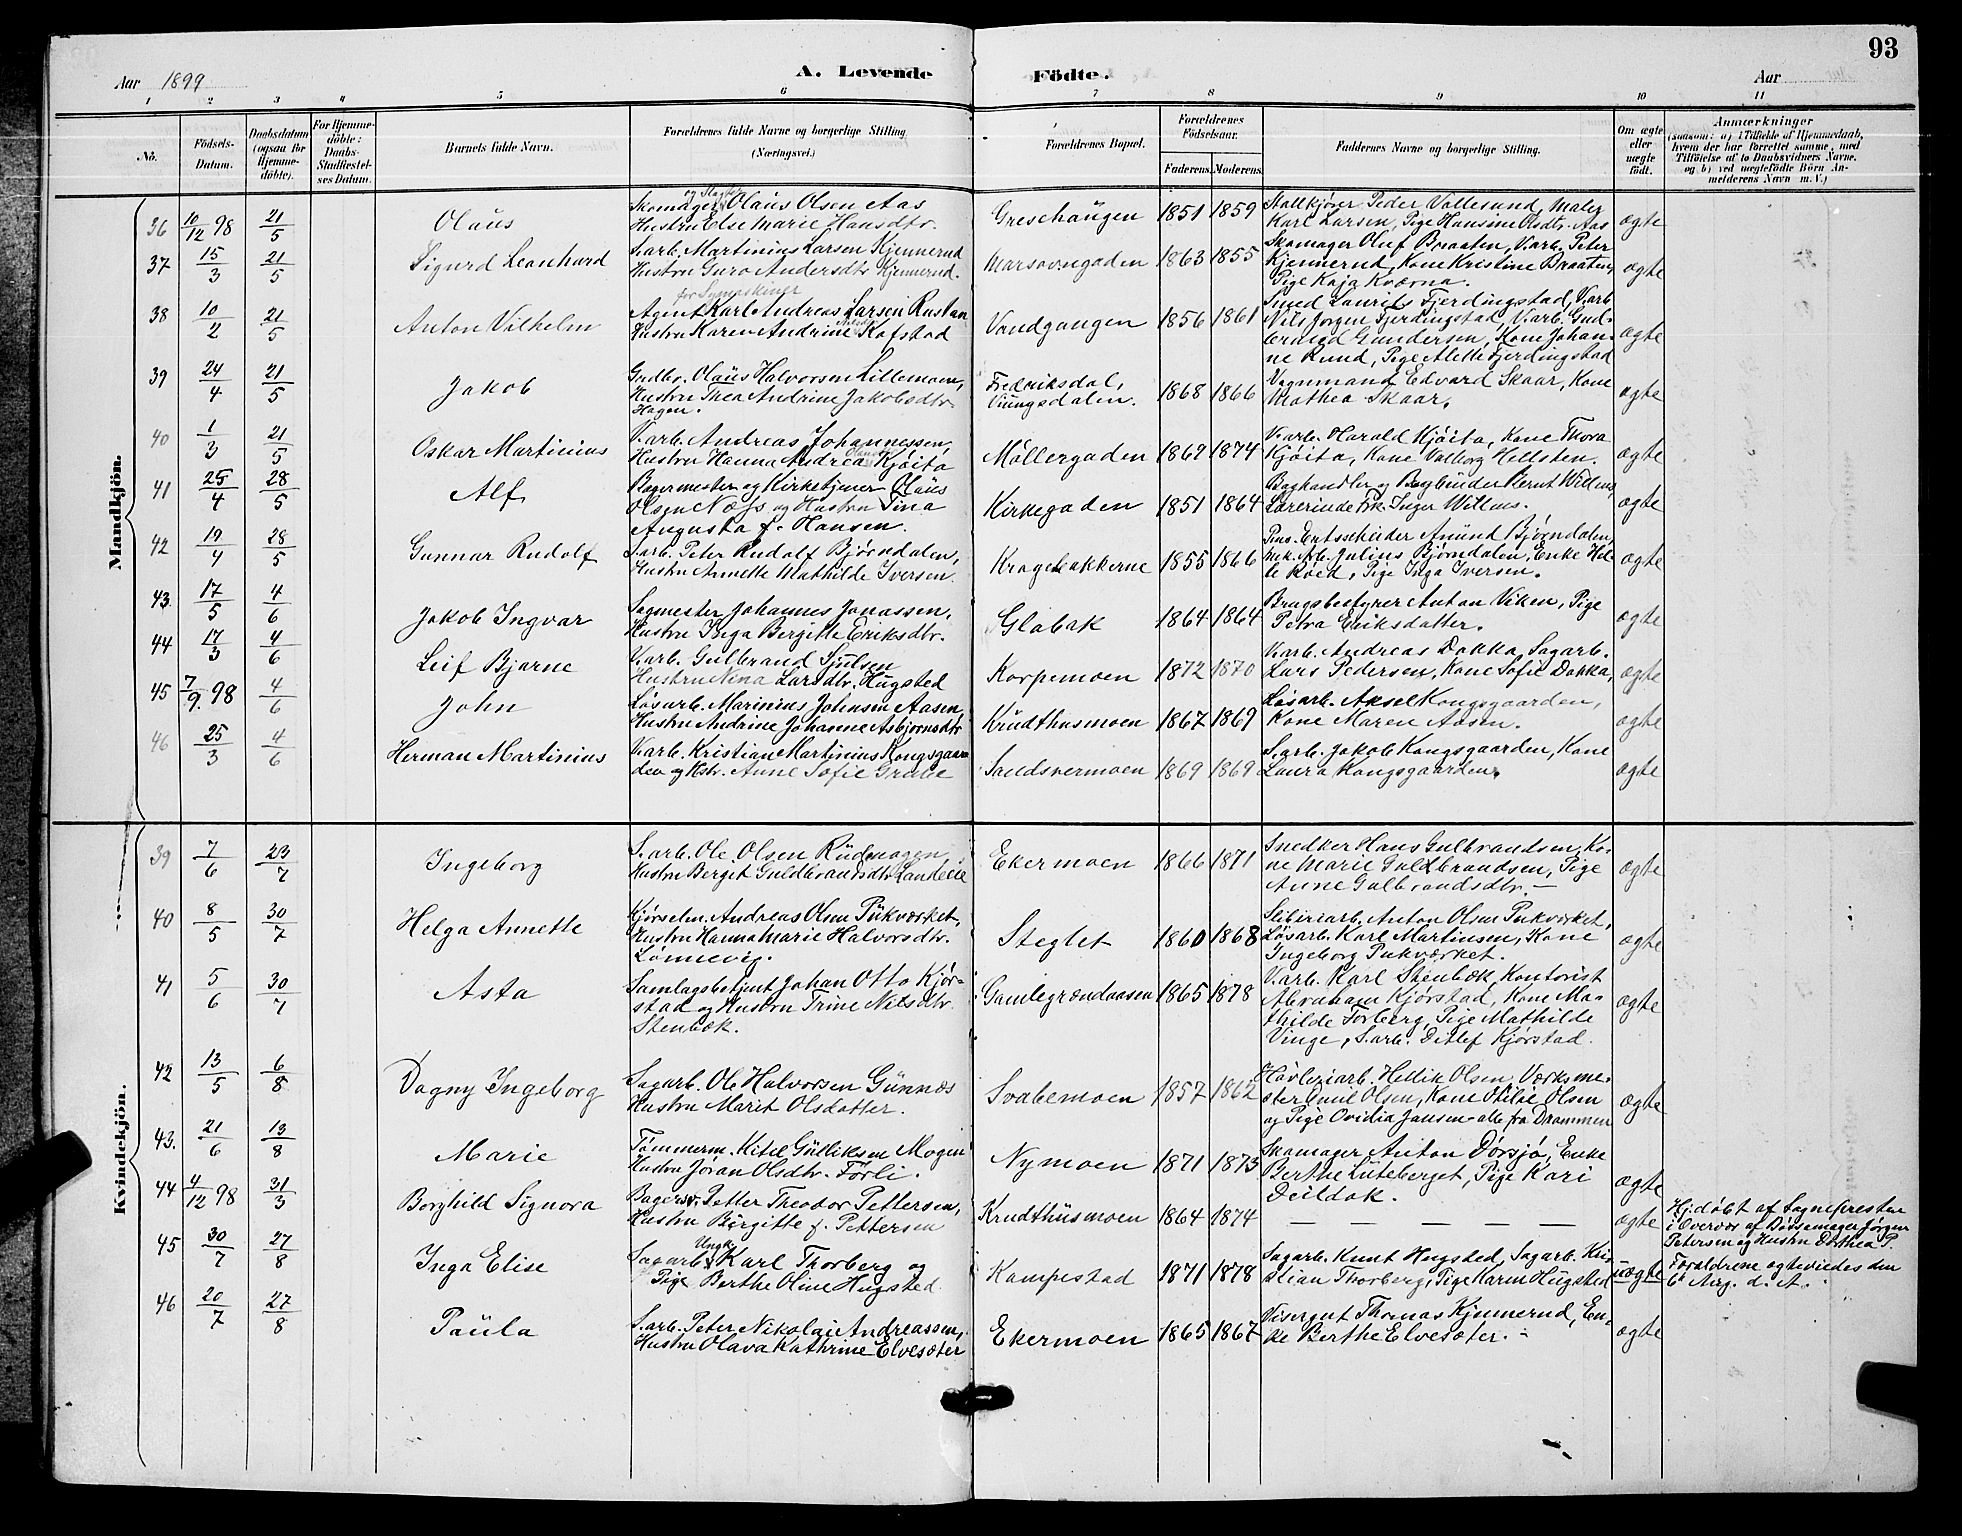 93
Aar 1899
A. Levende
Födte.
Aar
1 2 3 4 5 6 7 8 9 10 11
No.
Födsels-
Datum.
Daabsdatum
(ogsaa for
Hjemme-
döbte).
For Hjemme-
döbte:
Daabs-
Stadfæstel-
ses Datum.
Barnets fulde Navn.
Forældrenes fulde Navne og borgerlige Stilling.
(Næringsvei.)
Forældrenes Bopæl.
Forældrenes
Födselsaar.
Faderens. Moderens.
Faddernes Navne og borgerlige Stilling.
Om ægte
eller
uægte
födt.
Anmærkninger
(saasom: a) i Tilfælde af Hjemmedaab,
hvem der har forrettet samme, med
Tilföielse af to Daabsvidners Navne,
og b) ved uægtefödte Börn An-
melderens Navn m. V.)
Mandkjön.
36 10/12 98 21/5 Olaus
Skomager og Olaus Olsen Aas
Hustru Else Marie Hansdtr.
Greschaugen 1851 1859
Staltkjører Peder Vallesund, Maler
Karl Larsen, Pige Hansine Olsdtr. Aas
ægte
37 15/3 21/5 Sigurd Leonhard
S.arb. Martinius Larsen Kjennerud
Hustru Guro Andersdtr Kjennerud.
Marsovngaden 1863 1855
Skomager Oluf Braaten, V.arb. Peter
Kjennerud, Kone Kristine Braaten,
Pige Kaja Kværna.
ægte
38 10/2 21/5 Anton Vilhelm
for Symaskiner
Agent Karl Andreas Larsen Rustan
Hustru Karen Andrine Kafstad
Vandgangen 1856 1861
Smed Laurits Fjerdingstad, V.arb
Nils Jørgen Fjerdingstad, V.arb. Gud-
Gundersen, Kone Johan-
ne Rund, Pige Alette Fjerdingstad
ægte
39 24/4 21/5 Jakob
Guldbr. Olaus Halvorsen Lillemoen,
Hustru Thea Andrine Jakobsdtr.
Hagen.
Fredriksdal,
Viungsdalen. 1868 1866
Vognmand Edvard Skaar, Kone
Mathea Skaar.
ægte
40 1/3 21/5 Oskar Martinius
V.arb. Andreas Johannessen,
Hustru Hanna Andrea Kjøita
Møllergaden 1869 1874
V.arb. Harald Kjøita, Kone Thora
Kjøita, Kone Valborg Hellsten.
ægte
41 25/4 28/5 Alf
Bagermester og Kirketjener Olaus
Olsen Næss og Hustru Tina
Augusta f. Hansen.
Kirkegaden 1851 1864
Boghandler og Bogbinder Bernt Willms,
Lærerinde Frk. Inger Willms.
ægte
42 19/4 28/5 Gunnar Rudolf
S.arb. Peter Rudolf Bjørndalen,
Hustru Annette Mathilde Iversen.
Kragebakkerne 1855 1866
Anund Bjørndalen,
mek. Arb. Julius Bjørndalen, Enke Hel-
le Røed, Pige Inga Iversen.
ægte
43. 17/5 4/6 Jakob Ingvar
Sagmester Johannes Jonassen,
Hustru Inga Bergitte Eriksdtr.
Glabak 1864 1864
Brugsbestyrer Anton Viken, Pige
Petra Eriksdatter.
ægte
44 17/3 4/6 Leif Bjarne
V.arb. Gulbrand Sjulsen
Hustru Nina Larsdtr. Hugsted
Korpemoen 1872 1870
V.arb. Andreas Dokka, Sagarb.
Lars Pedersen, Kone Sofie Dokka,
ægte
45 7/9. 98 4/6 John
Løsarb. Marinius Johnsen Aasen,
Hustru Andrine Johanne Asbjørnsdtr
Krudthusmoen 1867 1869
Løsarb. Aksel Kongsgaarden,
Kone Maren Aasen.
ægte
46 25/3 4/6 Herman Martinius
V.arb. Kristian Martinius Kongsgaar-
den og Hstr. Anne Sofie Grane
Sandsvermoen 1869 1869
S.arb. Jakob Kongsgaarden, Kone
Laura Kongsgaarden.
ægte
Kvindekjön.
39 7/6 23/7 Ingeborg
S.arb. Ole Olsen Rudmogen
Hustru Berget Guldbrandsdtr. Landeeie
Ekermoen 1866 1871
Snedker Hans Gulbrandsen, Ko-
ne Marie Guldbrandsen, Pige
Anne Gulbrandsdtr. —
ægte
40 8/5 30/7 Helga Annette
Kjørselm. Andreas Olsen Pukværket,
Hustru Hanna Marie Halvorsdtr.
Lønnevig.
Steglet 1860 1868
Sliberiarb. Anton Olsen Pukværket,
Løsarb. Karl Martinsen, Kone
Ingeborg Pukværket.
ægte
41 5/6 30/7 Asta
Samlagsbetjent Johan Otto Kjør-
stad og Hustru Trine Nilsdtr.
Stenbæk.
Gamlegrændaasen 1865 1878
V.arb. Karl Stenbæk, Kontorist
Abraham Kjørstad, Kone Ma-
thilde Torberg, Pige Mathilde
Vinge, S.arb. Ditlef Kjørstad.
ægte
42 13/5 6/8 Dagny Ingeborg
Sagarb. Ole Halvorsen Gunnæs
Hustru Marit Olsdatter.
Svabemoen 1857 1862
Høvleriarb. Hellik Olsen, Værksme-
ster Emil Olsen, Kone Otilie Olsen
og Pige Ovidia Jansen - alle fra Drammen
ægte
43. 21/6 13/8 Marie
Tømmerm. Kitil Gulliksen Mogen
Hustru Jøran Olsdtr. Førli.
Nymoen 1871 1873
Skomager Anton Dørsjø, Enke
Berthe Luteberget, Pige Kari
Deildok.
ægte
44 4/12 98 31/3 Borghild Signora
Bagersv. Petter Theodor Pettersen,
Hustru Birgitte f. Pettersen
Krudthusmoen 1864 1874
— — — — —
ægte
Hj.døbt af Sognepresten
i Overvær af Jørgen
Petersen og Hustru Dorthea P.
45 30/7 27/8 Inga Elise
Ungk.
Sagarb. Karl Thorberg og
Pige Berthe Oline Hugsted.
Kampestad 1871 1878
Sagarb. Knut Hugsted, Sagarb. Kri-
stian Thorberg, Pige Karen Hugsted
uægte
Forældrene ægteviedes den
6te Aug. d. A.
46 20/7 27/8 Paula
S.arb. Peter Nikolai Andreassen,
Hustru Olava Kathrine Elvesæter
Ekermoen 1865 1867
Visergut Thomas Kjennerud, En-
ke Berthe Elvesæter.
ægte